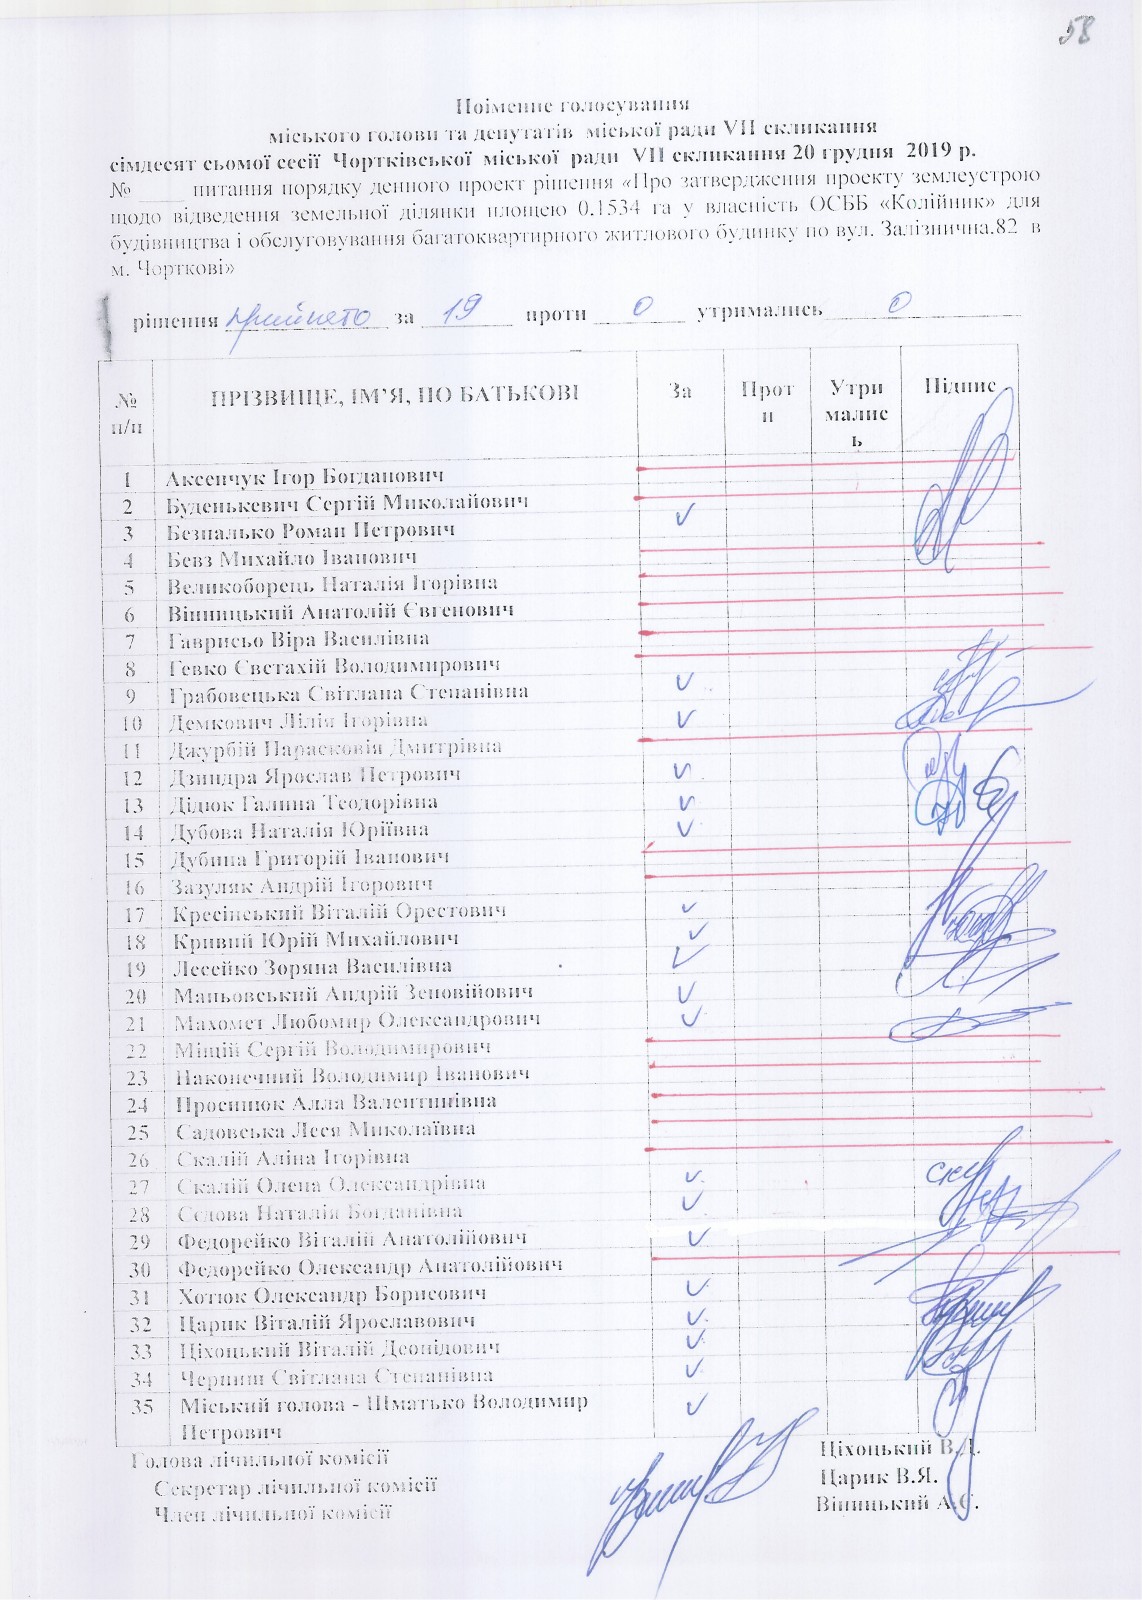 58
Поіменне голосування
міського голови та депутатів міської ради VII скликання
сімдесят сьомої сесії Чортківської міської ради VII скликання 20 грудня 2019 р.
№ ____ питання порядку денного проект рішення «Про затвердження проекту землеустрою
щодо відведення земельної ділянки площею 0.1534 га у власність ОСББ «Колійник» для
будівництва і обслуговування багатоквартирного житлового будинку по вул. Залізнична,82 в
м. Чорткові»
рішення прийнято за 19 проти 0 утримались 0
№ п/п ПРІЗВИЩЕ, ІМ’Я, ПО БАТЬКОВІ За Проти Утрималис ь Підпис
1 Аксенчук Ігор Богданович
2 Буденькевич Сергій Миколайович
3 Безпалько Роман Петрович
4 Бевз Михайло Іванович
5 Великоборець Наталія Ігорівна
6 Вінницький Анатолій Євгенович
7 Гаврисьо Віра Василівна
8 Гевко Євстахій Володимирович
9 Грабовецька Світлана Степанівна
10 Демкович Лілія Ігорівна
11 Джурбій Парасковія Дмитрівна
12 Дзиндра Ярослав Петрович
13 Дідюк Галина Теодорівна
14 Дубова Наталія Юріївна
15 Дубина Григорій Іванович
16 Зазуляк Андрій Ігорович
17 Кресінський Віталій Орестович
18 Кривий Юрій Михайлович
19 Лесейко Зоряна Василівна
20 Маньовський Андрій Зеновійович
21 Махомет Любомир Олександрович
22 Міщій Сергій Володимирович
23 Наконечний Володимир Іванович
24 Просинюк Алла Валентинівна
25 Садовська Леся Миколаївна
26 Скалій Аліна Ігорівна
27 Скалій Олена Олександрівна
28 Сєдова Наталія Богданівна
29 Федорейко Віталій Анатолійович
30 Федорейко Олександр Анатолійович
31 Хотюк Олександр Борисович
32 Царик Віталій Ярославович
33 Ціхоцький Віталій Леонідович
34 Черниш Світлана Степанівна
35 Міський голова - Шматько Володимир
Петрович
Голова лічильної комісії Ціхоцький В.Л.
Секретар лічильної комісії Царик В.Я.
Член лічильної комісії Вінницький А.Є.